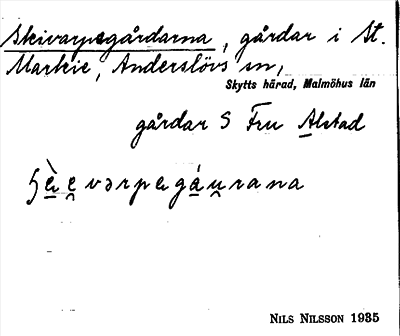 Skivarpsgårdarna, gårdar i St.
Markie, Anderslövs sn,
Skytts härad, Malmöhus län
gårdar S Fru Alstad
NILS NILSSON 1935